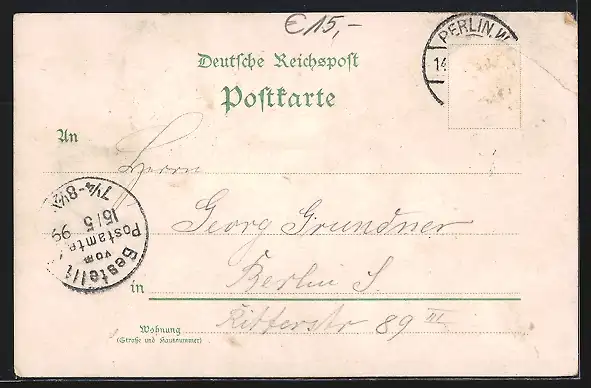 € 15,-
BERLIN. W
14
Deutsche Reichspost
Postkarte
An
Herrn
Georg Grundner
Berlin S.
in
Ritterstr 89 III
Wohnung
(Straße und Hausnummer)
Bestellt
vom
Postamte
15/5 99
7¼-8½V